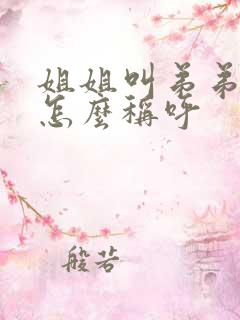 姐姐叫弟弟
怎麼稱呼
般若